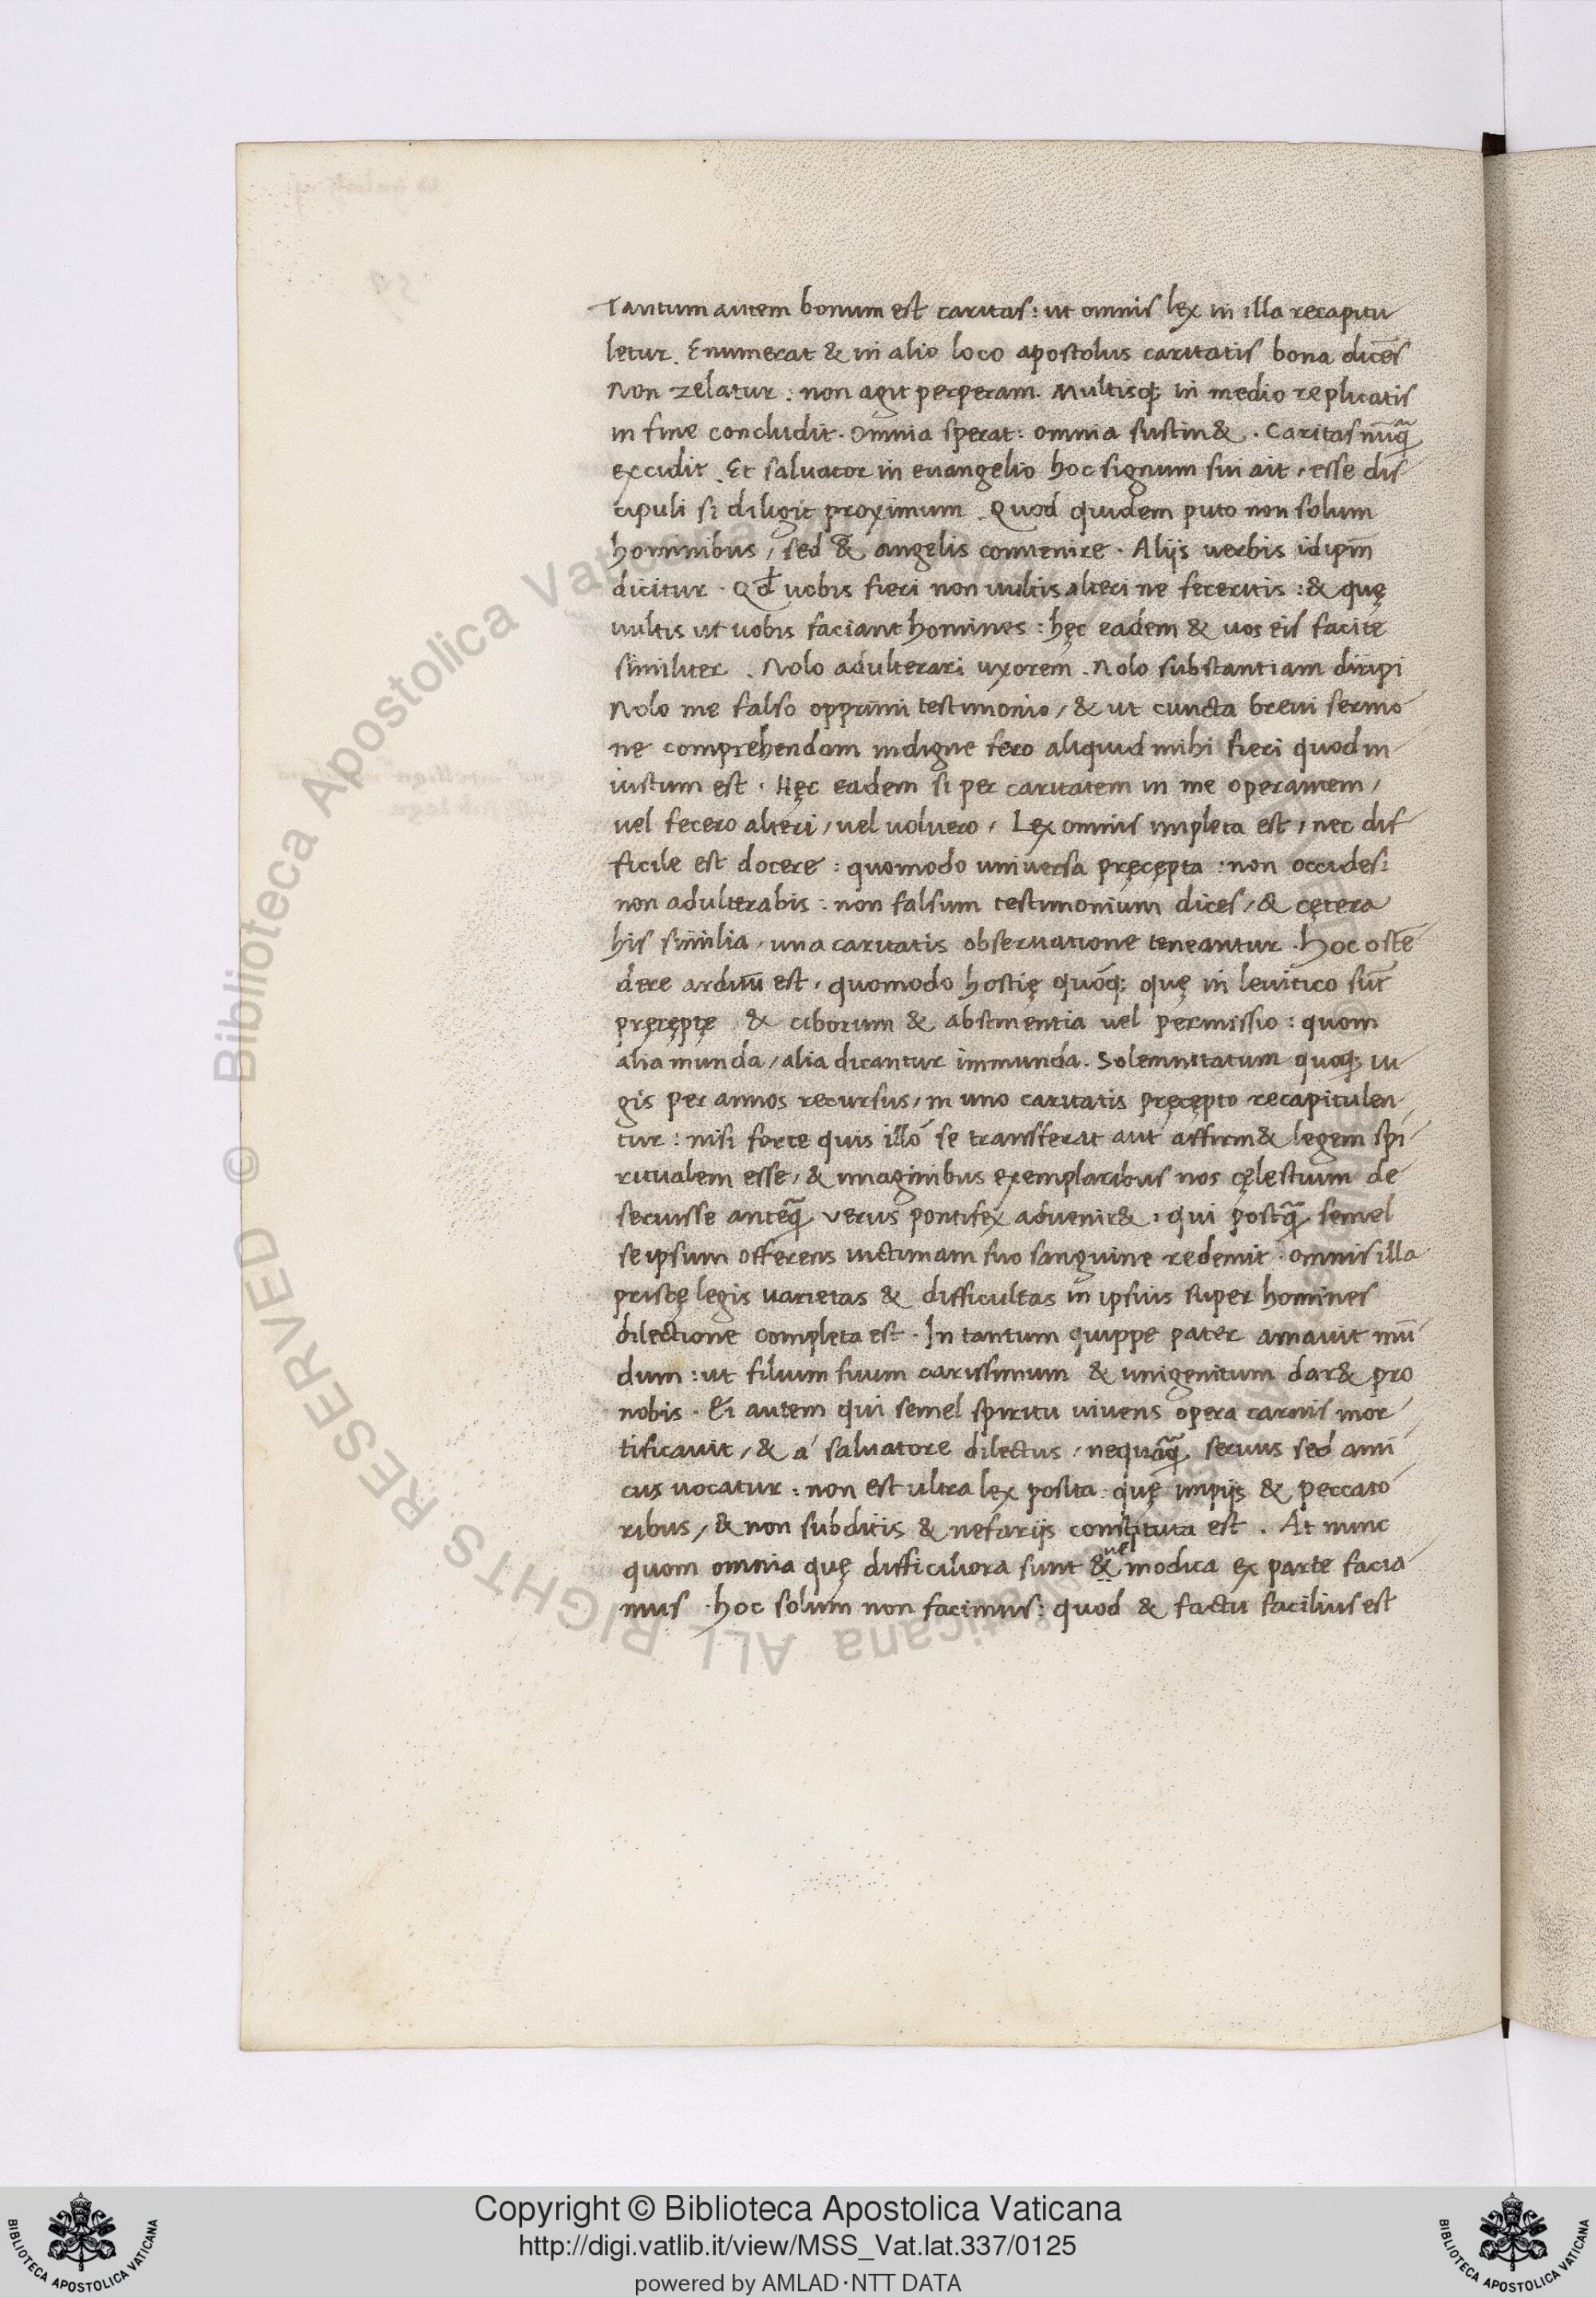 Tantum autem bonum est caritas: ut omnis lex in illa recapitu
letur. Enumerat & in alio loco apostolus caritatis bona dicēs
Non zelatur: non agit perperam. Multisq; in medio replicatis
in fine concludit. Omnia sperat: omnia sustin&. Caritas nūq̃
excidit. Et saluator in euangelio hoc signum sui ait, esse dis
cipuli si diligit proximum. Quod quidem puto non solum
hominibus, sed & angelis conuenire. Alijs uerbis idipm̄
dicitur. Qđ uobis fieri non uultis alteri ne feceritis: & quę
uultis ut uobis faciant homines: hęc eadem & uos eis facite
similiter. Nolo adulterari uxorem. Nolo substantiam diripi
Nolo me falso opprimi testimonio, & ut cuncta breui sermo
ne comprehendam indigne fero aliquid mihi fieri quod in
iustum est. Hęc eadem si per caritatem in me operantem,
uel fecero alteri, uel uoluero, Lex omnis impleta est, nec dif
ficile est docere: quomodo universa pręcępta: non occides:
non adulterabis: non falsum testimonium dices, & cętera
his similia, una caritatis obseruatione teneantur. Hoc ostē
dere arduū est, quomodo hostię quoq; quę in leuitico sūt
pręcęptę & ciborum & abstinentia uel permissio: quom
alia munda, alia dicantur immunda. Solemnitatum quoq; iu
gis per annos recursus, in uno caritatis pręcępto recapitulen
tur: nisi forte quis illó se transferat aut affirm& legem spi
ritualem esse, & imaginibus exemplaribus nos cęlestium de
seruisse anteq̃ verus pontifex advenir&, qui postq̃ semel
se ipsum offerens uictimam suo sanguine redemit. omnis illa
priscę legis varietas & difficultas in ipsius super homines
dilectione completa est. In tantum quippe pater amauit mū
dum: ut filium suum carissimum & unigenitum dar& pro
nobis. Ei autem qui semel spiritu uiuens opera carnis mor
tificauit, & á saluatore dilectus, nequaq̃ seruus sed ami
cus uocatur: non est ultra lex posita: quę impijs & peccato
ribus, & non subditis & nefarijs constituta est. At nunc
uel
quom omnia quę difficiliora sunt & modica ex parte facia
mus. hoc solum non facimus: quod & factu facilius est
© Biblioteca Apostolica Vaticana ALL RIGHTS RESERVED
Copyright © Biblioteca Apostolica Vaticana
http://digi.vatlib.it/view/MSS_Vat.lat.337/0125
powered by AMLAD·NTT DATA
BIBLIOTECA APOSTOLICA VATICANA
BIBLIOTECA APOSTOLICA VATICANA